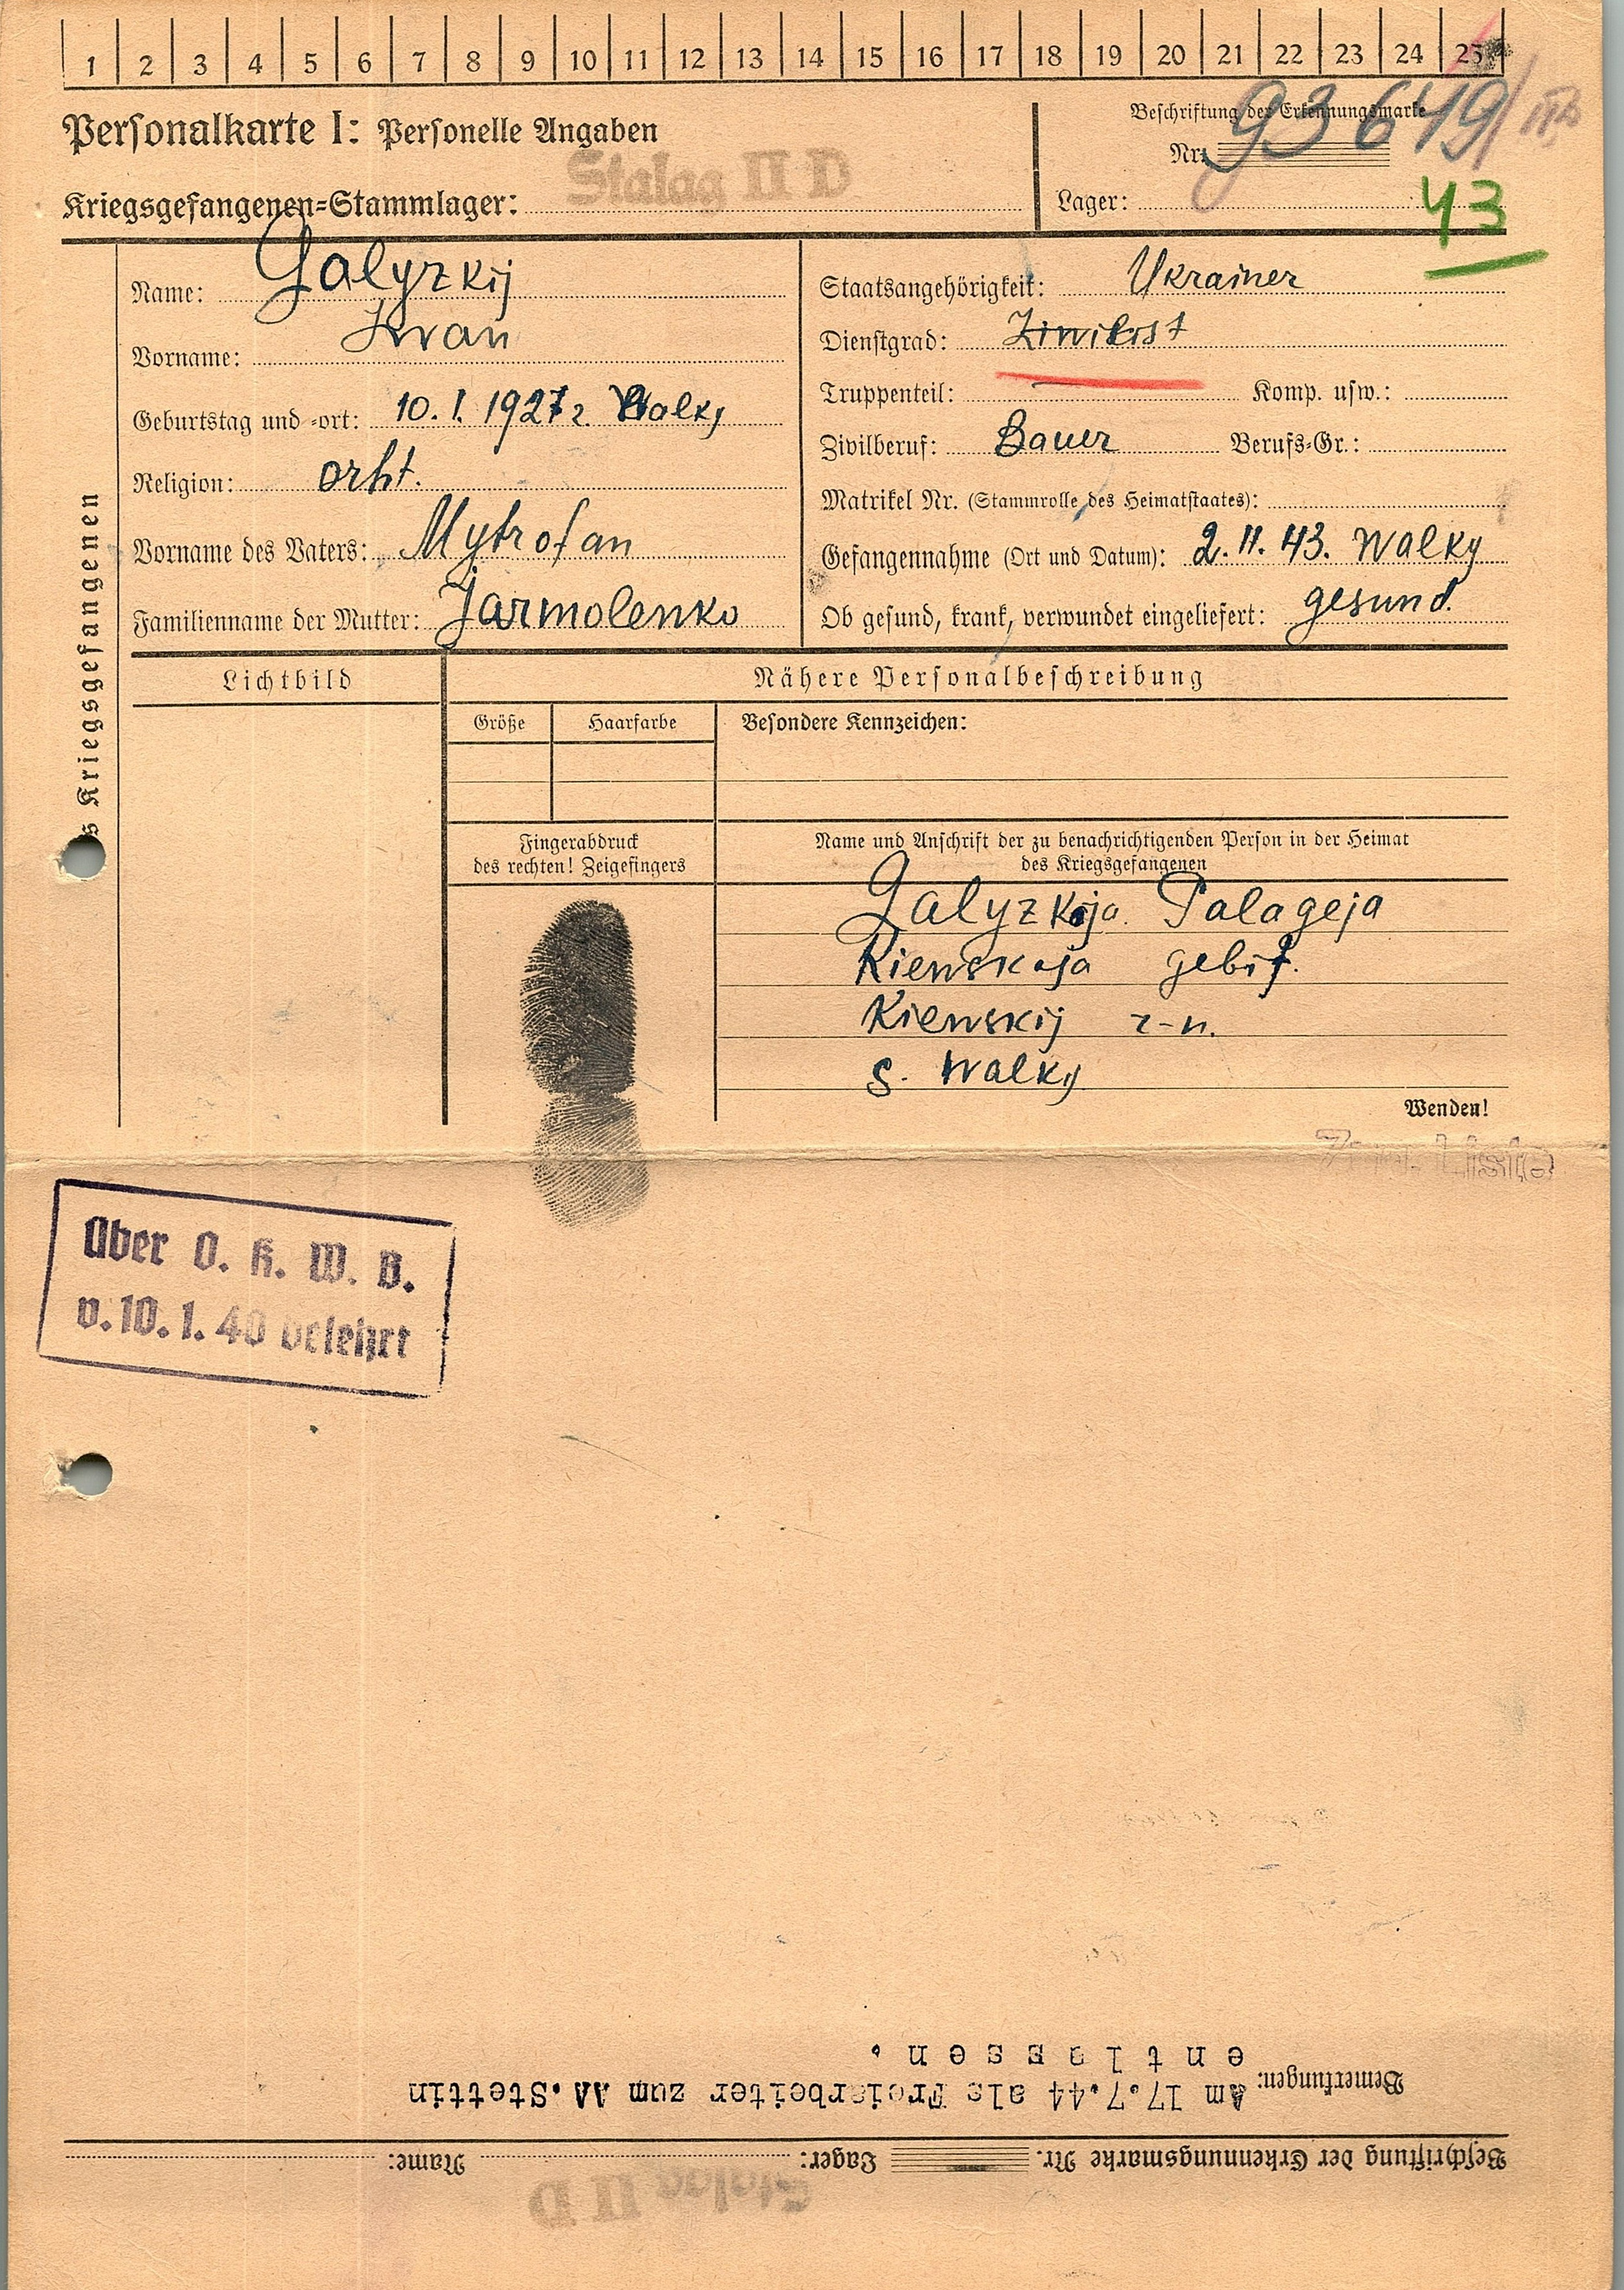 1 2 3 4 5 6 7 8 9 10 11 12 13 14 15 16 17 18 19 20 21 22 23 24 25
Personalkarte I: Personelle Angaben
Beschriftung der Erkennungsmarke
Nr: 93649/
Stalag II D
Kriegsgefangenen-Stammlager:
Lager:
43
Name: Galyzkij
Vorname: Iwan
Geburtstag und -ort: 10. I. 1927 r. Walky
Religion: orht.
Vorname des Vaters: Mytrofan
Familienname der Mutter: Jarmolenko
Staatsangehörigkeit: Ukrainer
Dienstgrad: Ziwilist
Truppenteil: — Komp. usw.:
Zivilberuf: Bauer Berufs-Gr.:
Matrikel Nr. (Stammrolle des Heimatstaates):
Gefangennahme (Ort und Datum): 2. 11. 43. Walky
Ob gesund, krank, verwundet eingeliefert: gesund.
s Kriegsgefangenen
Lichtbild
Nähere Personalbeschreibung
Größe Haarfarbe Besondere Kennzeichen:
Fingerabdruck
des rechten! Zeigefingers
Name und Anschrift der zu benachrichtigenden Person in der Heimat
des Kriegsgefangenen
Galyzkaja Palageja
Kiewskaja gebit.
Kiewskij r-n.
s. Walky
Wenden!
Über O. K. W. B.
v. 10. 1. 40 belehrt
Stalag II D
Beschriftung der Erkennungsmarke Nr. Lager: Name:
Bemerkungen: Am 17.7.44 als Freiarbeiter zum AA.Stettin
entlassen.